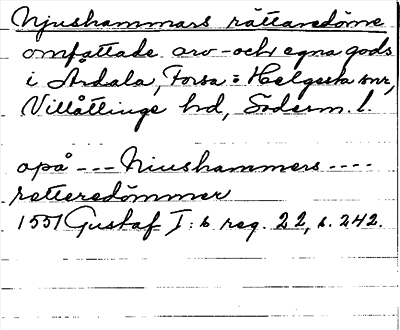 Njushammars rättaredöme
omfattade arv- och egna gods
i Årdala, Forsa = Helgesta snr,
Villåttinge hd, Söderm. l.
apå --- Niushammers ----
retteredömmer
1551 Gustaf I:s reg. 22, s. 242.